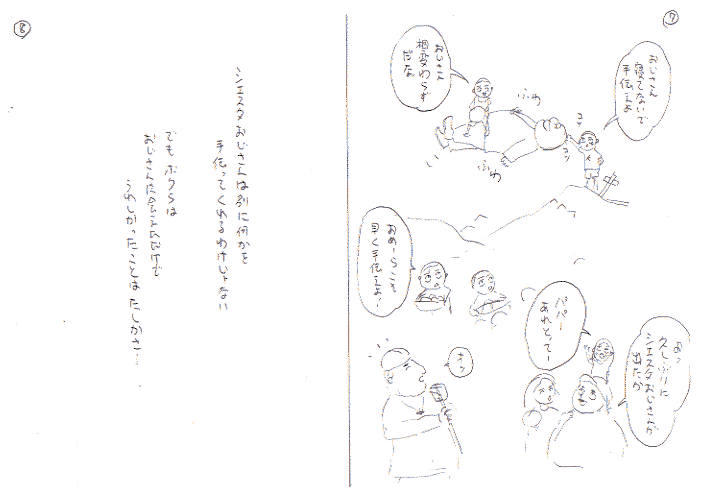 ⑦
おじさん
寝てないで
手伝えよ
コツ
コツ
おじさん
相変わらず
だな
ふわ
ふわ
おめーらこそ
早く手伝えよ!
あっ
久しぶりに
シエスタおじさんが
出たか
パパー
あれとってー
⑧
シエスタおじさんは別に何かを
手伝ってくれるわけじゃない
でもボクらは
おじさんに会えただけで
うれしかったことはたしかさ…